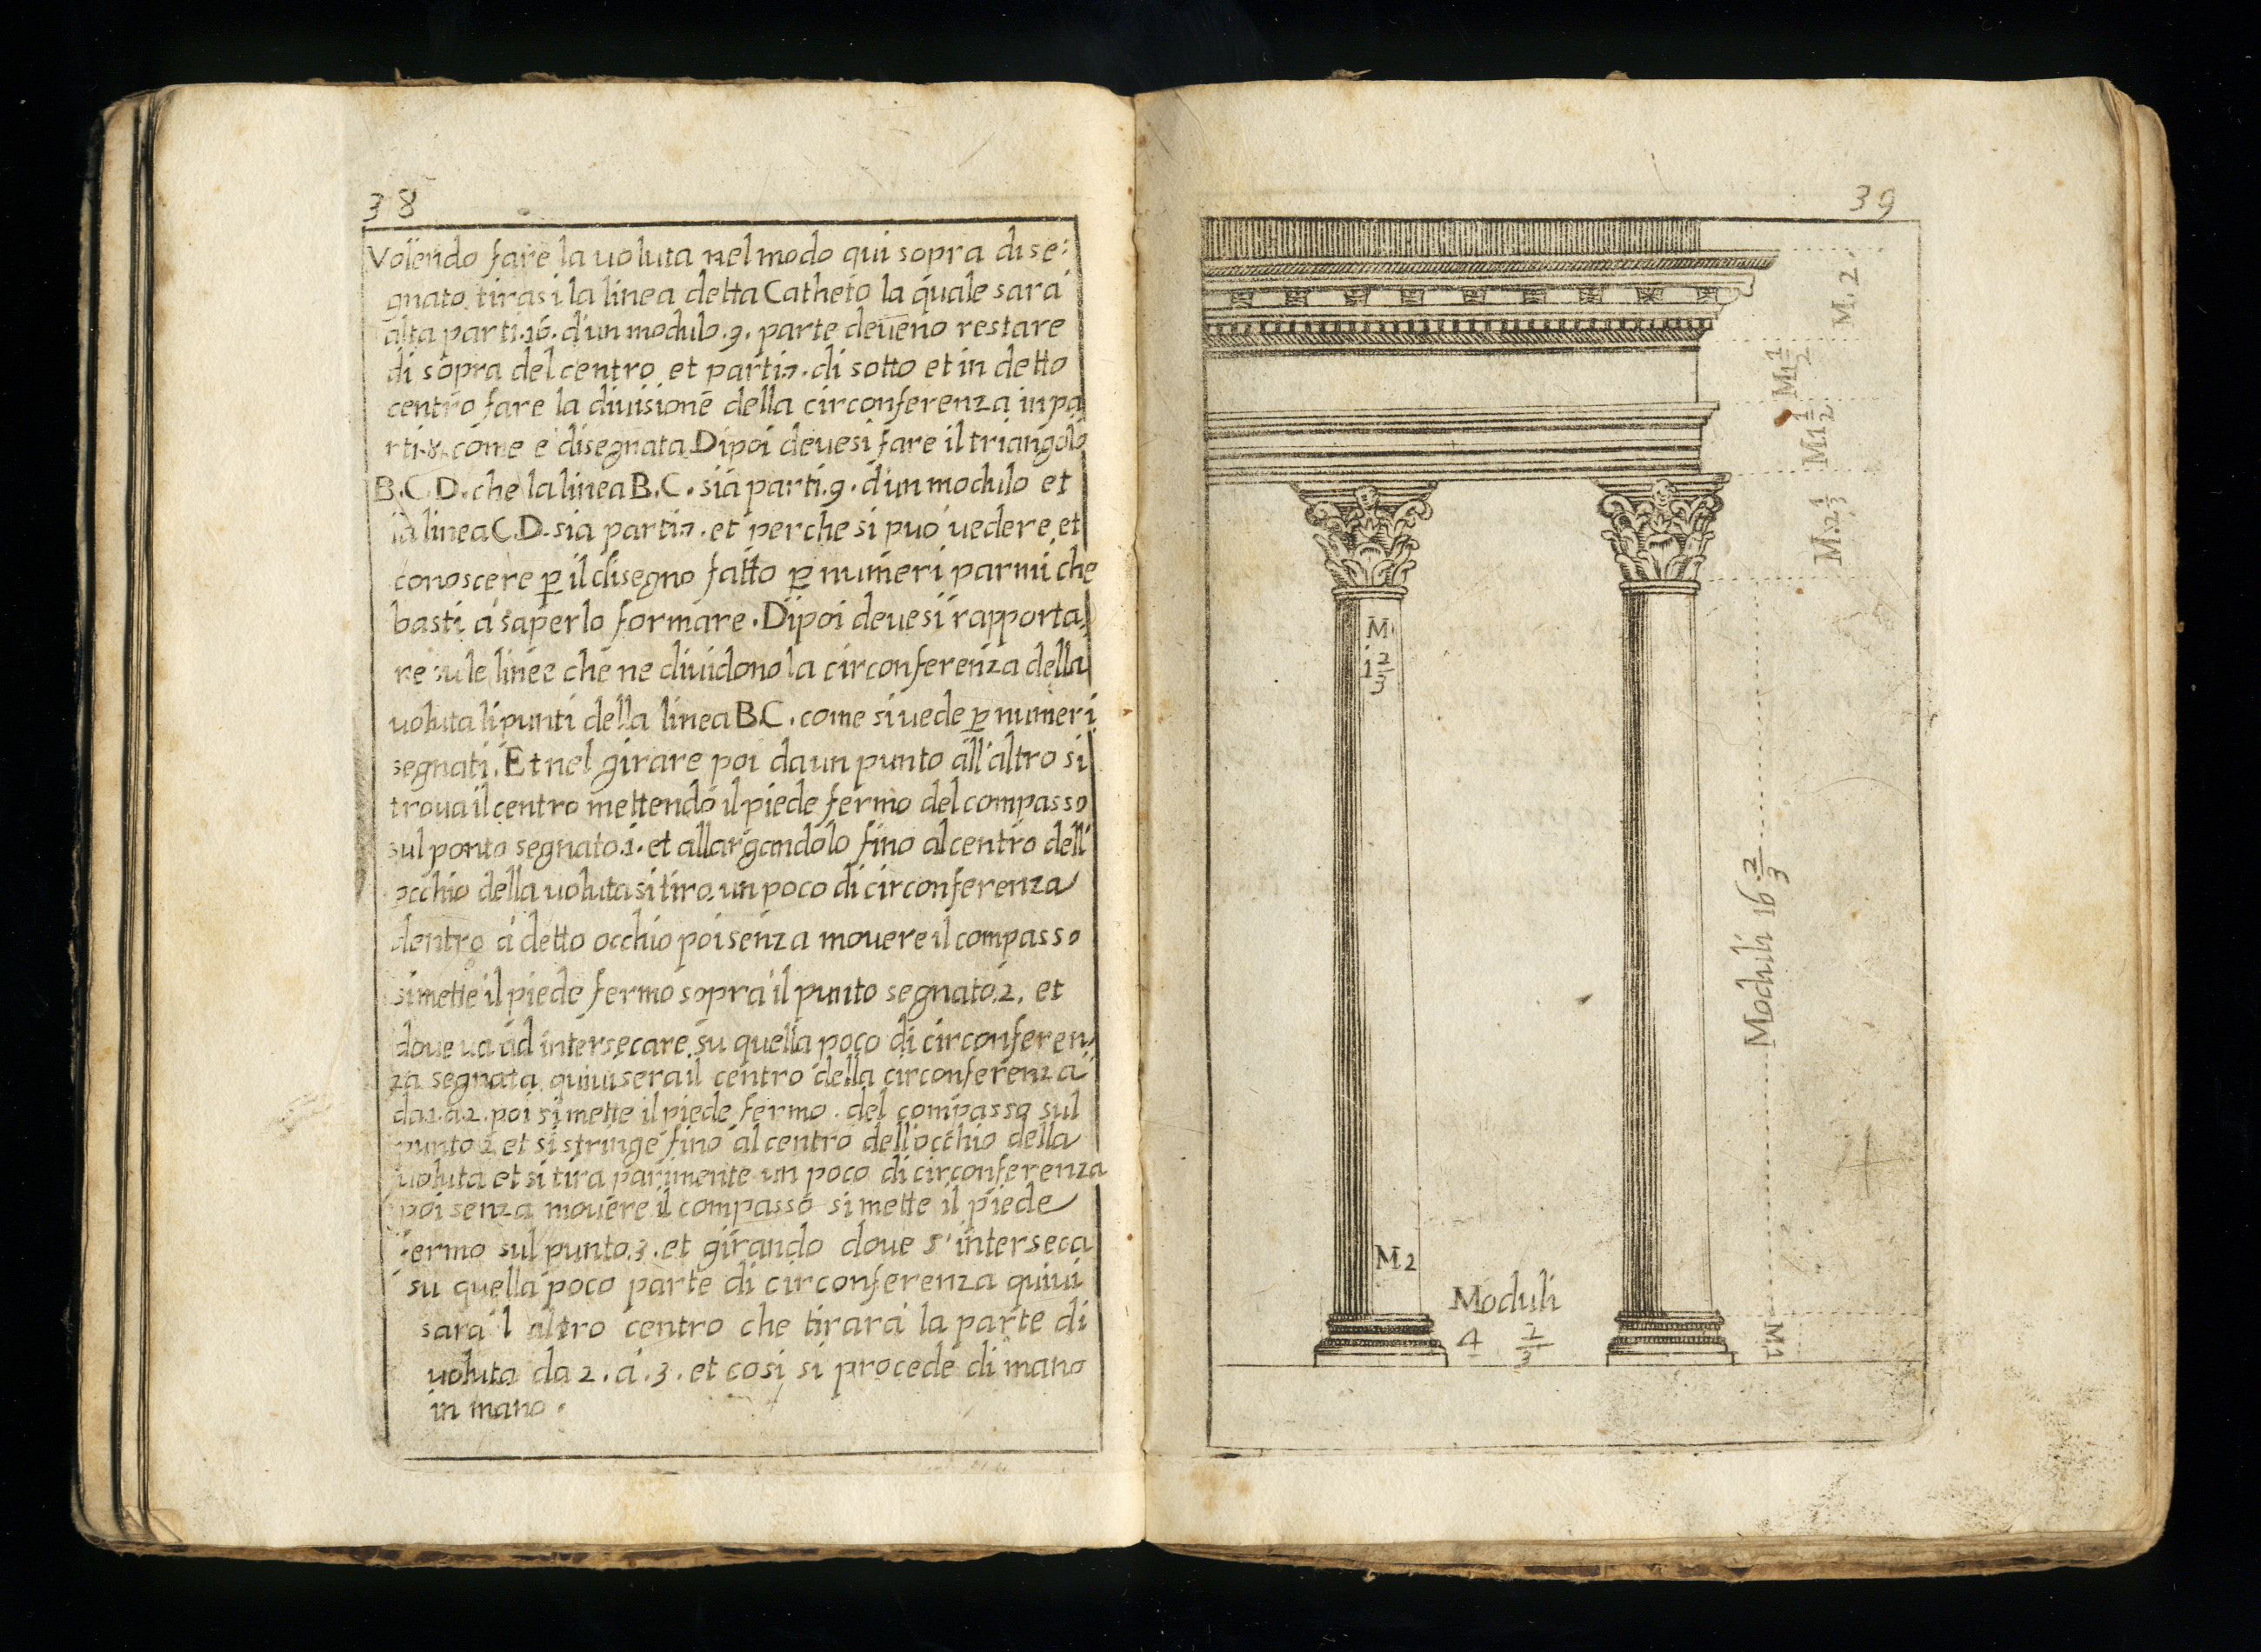 38
Volendo fare la uoluta nel modo qui sopra dise:
gnato tirasi la linea detta Catheto la quale sara
alta parti .16. d'un modulo .9. parte deueno restare
di sopra del centro et parti .7. di sotto et in detto
centro fare la diuisione della circonferenza in pa
rti .8. come e disegnata Dipoi deuesi fare il triangolo
B.C.D. che la linea B.C. sia parti .9. d'un modulo et
la linea C.D. sia parti .7. et perche si puo uedere et
conoscere ꝑ il disegno fatto ꝑ numeri parmi che
basti á saperlo formare. Dipoi deuesi rapporta,
re su le linee che ne diuidono la circonferenza della
uoluta li punti della linea B.C. come si uede ꝑ numeri
segnati. Et nel girare poi da un punto all'altro si
troua il centro mettendo il piede fermo del compasso
sul ponto segnato .1. et allargandolo fino al centro dell'
occhio della uoluta si tira un poco di circonferenza
dentro á detto occhio poi senza mouere il compasso
si mette il piede fermo sopra il punto segnato .2. et
doue ua ad intersecare su quella poco di circonferen,
za segnata quiui sera il centro della circonferenza
da .1. a .2. poi si mette il piede fermo . del compasso sul
punto 2 et si stringe fino al centro dell'occhio della
uoluta et si tira parimente un poco di circonferenza
poi senza mouere il compasso si mette il piede
fermo sul punto .3. et girando doue s'interseca
su quella poco parte di circonferenza quiui
sara l altro centro che tirará la parte di
uoluta da 2. á .3. et cosi si procede di mano
in mano.
39
M. 2
M 1 1/2
M 1 1/2
M. 2 1/3
M
1 2/3
Moduli 16 2/3
M 2
Moduli
4 2/3
M 1